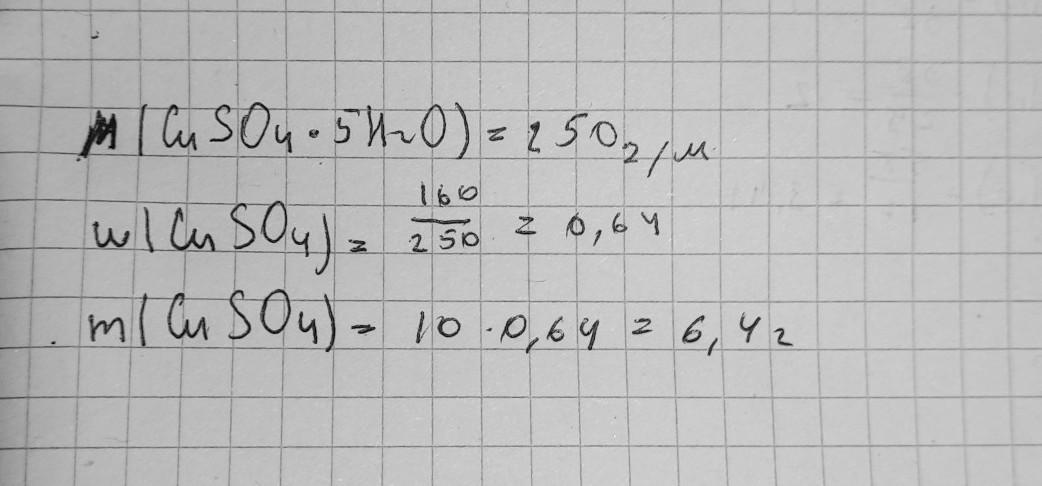 M(CuSO₄·5H₂O) = 250 г/м
w(CuSO₄) = 160/250 = 0,64
m(CuSO₄) = 10·0,64 = 6,4 г